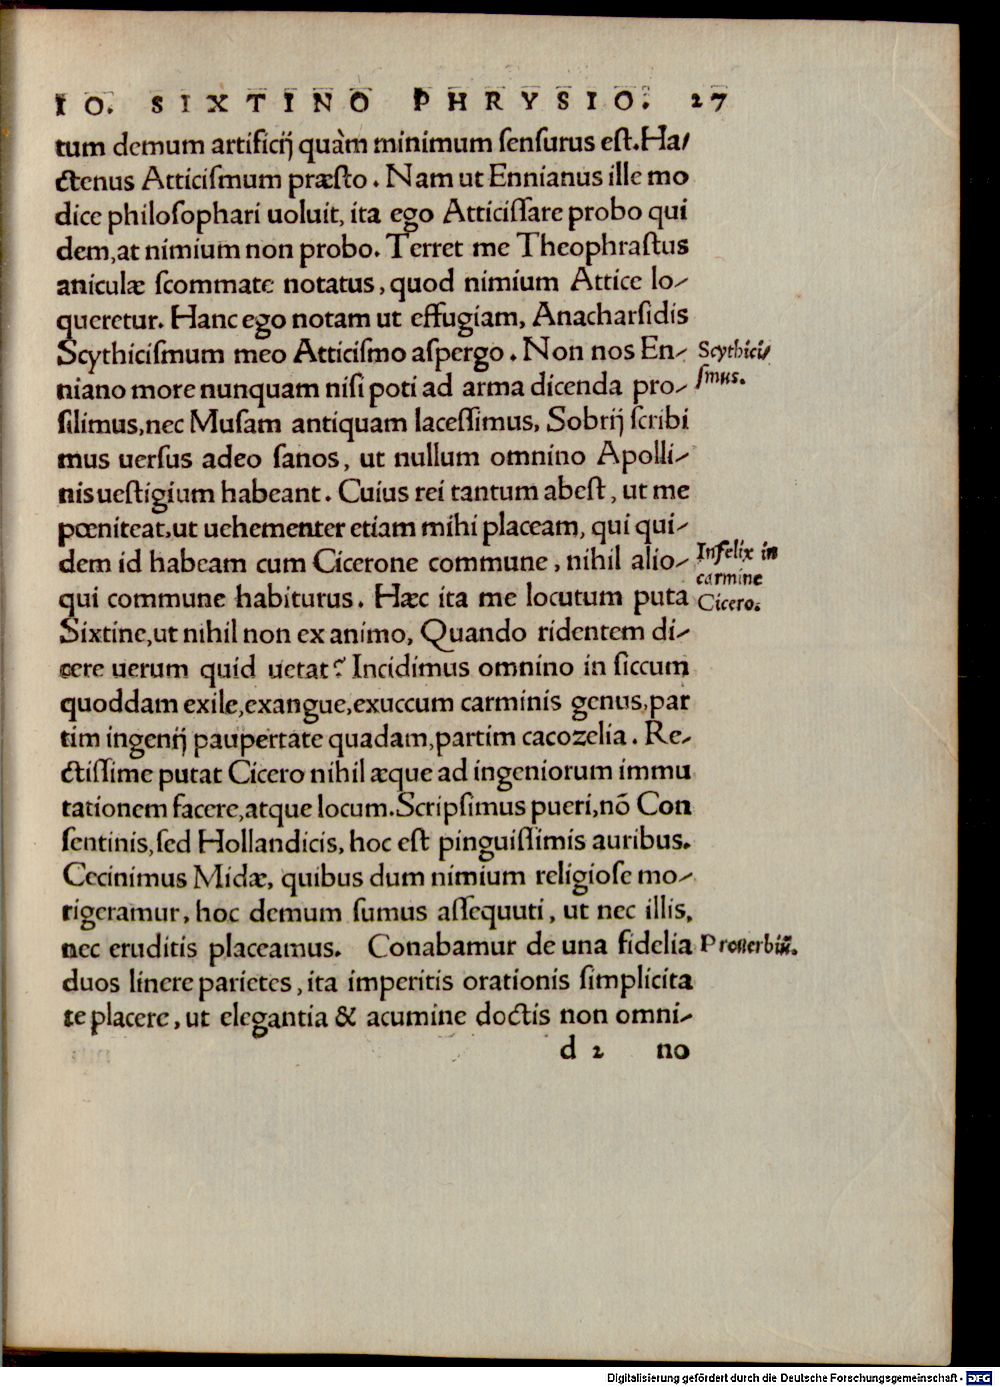 IO. SIXTINO PHRYSIO. 27
tum demum artificij quàm minimum ſenſurus eſt. Ha/
ctenus Atticiſmum præſto. Nam ut Ennianus ille mo
dice philoſophari uoluit, ita ego Atticiſſare probo qui
dem, at nimium non probo. Terret me Theophraſtus
aniculæ ſcommate notatus, quod nimium Attice lo-
queretur. Hanc ego notam ut effugiam, Anacharſidis
Scythiciſmum meo Atticiſmo aſpergo. Non nos En-
Scythici/
niano more nunquam niſi poti ad arma dicenda pro-
ſmus.
ſilimus, nec Muſam antiquam laceſſimus, Sobrij ſcribi
mus uerſus adeo ſanos, ut nullum omnino Apolli-
nis ueſtigium habeant. Cuius rei tantum abeſt, ut me
pœniteat, ut uehementer etiam mihi placeam, qui qui-
dem id habeam cum Cicerone commune, nihil alio-
Infelix in
carmine
qui commune habiturus. Hæc ita me locutum puta
Cicero.
Sixtine, ut nihil non ex animo, Quando ridentem di-
cere uerum quid uetat? Incidimus omnino in ſiccum
quoddam exile, exangue, exuccum carminis genus, par
tim ingenij paupertate quadam, partim cacozelia. Re-
ctiſſime putat Cicero nihil æque ad ingeniorum immu
tationem facere, atque locum. Scripſimus pueri, nõ Con
ſentinis, ſed Hollandicis, hoc eſt pinguiſſimis auribus.
Cecinimus Midæ, quibus dum nimium religioſe mo-
rigeramur, hoc demum ſumus aſſequuti, ut nec illis,
nec eruditis placeamus. Conabamur de una fidelia
Prouerbiũ.
duos linere parietes, ita imperitis orationis ſimplicita
te placere, ut elegantia & acumine doctis non omni-
d 2 no
Digitalisierung gefördert durch die Deutsche Forschungsgemeinschaft - DFG